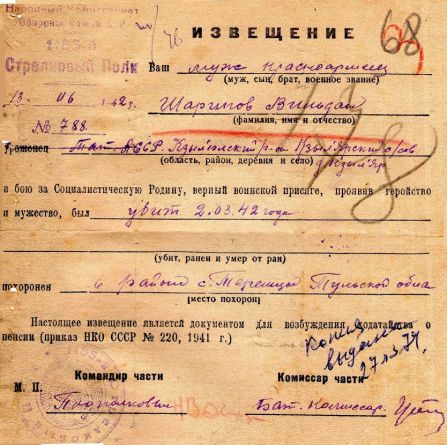 Народный Комиссариат
Обороны Союза ССР
1185-й
Стрелковый Полк
13. 06 1942 г.
№ 788
76
68
ИЗВЕЩЕНИЕ
Ваш муж красноармеец
(муж, сын, брат, военное звание)
Шарипов Вильдан
(фамилия, имя и отчество)
Уроженец Тат. АССР,
(область, район, деревня и село)
в бою за Социалистическую Родину, верный воинской присяге, проявив геройство
и мужество, был убит 2.03.42 года
(убит, ранен и умер от ран)
похоронен в районе с. Тульской обла
(место похорон)
Настоящее извещение является документом для возбуждения ходатайства о
пенсии (приказ НКО СССР № 220, 1941 г.)
Копия
выдана
М. П.
Командир части
Подполковник
Комиссар части
Бат. Комиссар